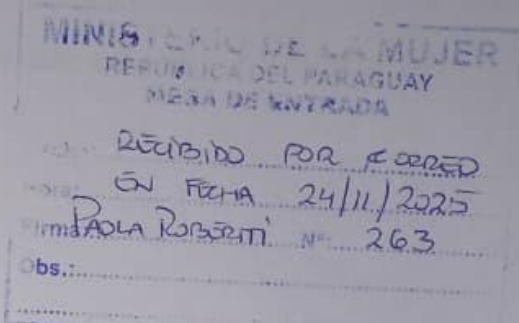 MINISTERIO DE LA MUJER
REPUBLICA DEL PARAGUAY
MESA DE ENTRADA
RECIBIDO POR CORREO
Hora: EN FECHA 24/11/2025
Firma: PAOLA ROBERTI Nº: 263
Obs.: